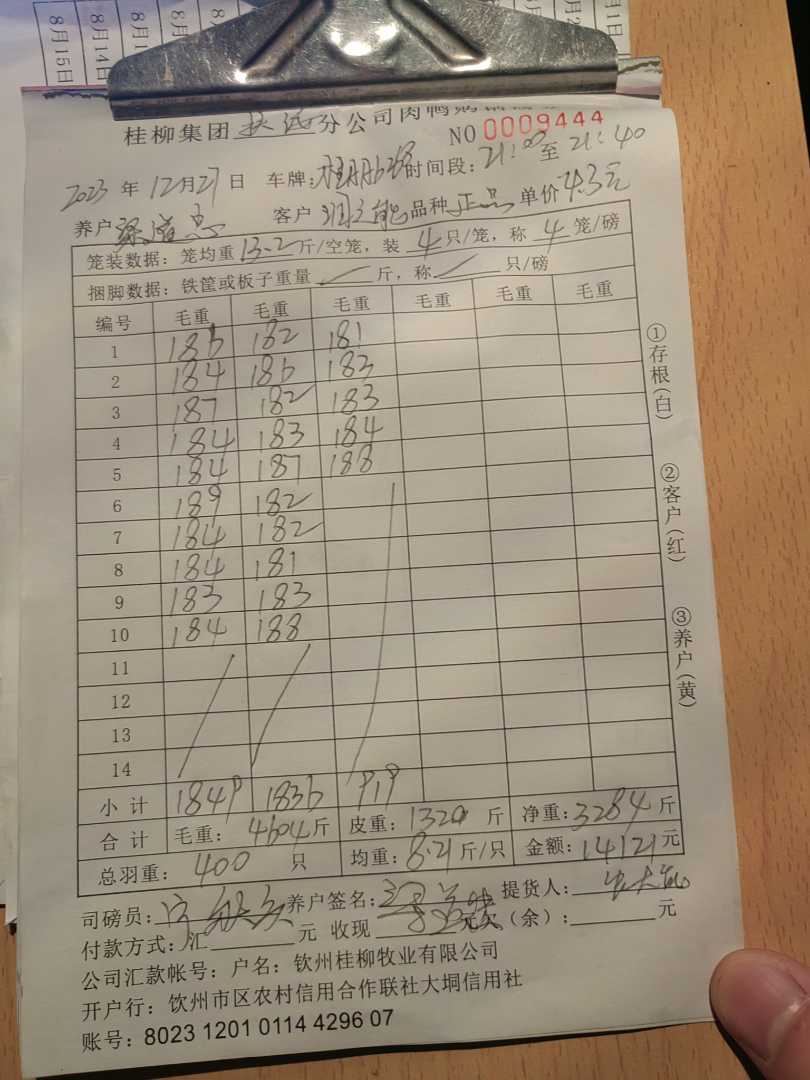 8月15日
8月14日
桂柳集团 分公司肉鸭购销
NO 0009444
2023 年 12月27 日 车牌: 时间段: 21:00 至 21:40
养户 客户 品种 正品 单价 4.3元
笼装数据: 笼均重 13.2 斤/空笼, 装 4 只/笼, 称 4 笼/磅
捆脚数据: 铁筐或板子重量 斤, 称 只/磅
编号 毛重 毛重 毛重 毛重 毛重 毛重
1 186 182 181
2 184 186 183
3 187 182 183
4 184 183 184
5 184 187 188
6 189 182
7 184 182
8 184 181
9 183 183
10 184 188
11
12
13
14
小计 1849 1836 919
合计 毛重: 4604 斤 皮重: 1320 斤 净重: 3284 斤
总羽重: 400 只 均重: 8.21 斤/只 金额: 14121 元
司磅员: 养户签名: 提货人:
付款方式: 汇 元 收现 元欠(余): 元
公司汇款帐号: 户名: 钦州桂柳牧业有限公司
开户行: 钦州市区农村信用合作联社大垌信用社
账号: 8023 1201 0114 4296 07
①存根(白)
②客户(红)
③养户(黄)